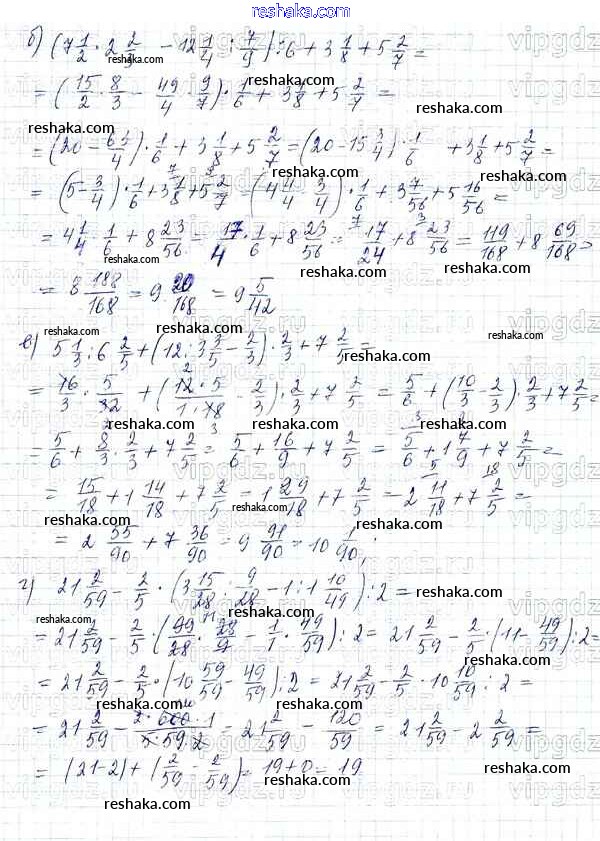 reshaka.com
б) (7 1/2 · 2 2/3 − 12 1/4 : 7/9) : 6 + 3 1/8 + 5 2/7 =
= (15/2 · 8/3 − 49/4 · 9/7) · 1/6 + 3 1/8 + 5 2/7 =
= (20 − 63/4) · 1/6 + 3 1/8 + 5 2/7 = (20 − 15 3/4) · 1/6 + 3 1/8 + 5 2/7 =
= (5 − 3/4) · 1/6 + 3 1/8 + 5 2/7 = (4 4/4 − 3/4) · 1/6 + 3 7/56 + 5 16/56 =
= 4 1/4 · 1/6 + 8 23/56 = 17/4 · 1/6 + 8 23/56 = 17/24 + 8 23/56 = 119/168 + 8 69/168 =
= 8 188/168 = 9 20/168 = 9 5/42
в) 5 1/3 : 6 2/5 + (12 : 3 3/5 − 2/3) · 2/3 + 7 2/5 =
= 16/3 · 5/32 + (12 · 5/1 · 18 − 2/3) · 2/3 + 7 2/5 = 5/6 + (10/3 − 2/3) · 2/3 + 7 2/5 =
= 5/6 + 8/3 · 2/3 + 7 2/5 = 5/6 + 16/9 + 7 2/5 = 5/6 + 1 7/9 + 7 2/5 =
= 15/18 + 1 14/18 + 7 2/5 = 1 29/18 + 7 2/5 = 2 11/18 + 7 2/5 =
= 2 55/90 + 7 36/90 = 9 91/90 = 10 1/90;
г) 21 2/59 − 2/5 · (3 15/28 : 9/28 − 1 : 1 10/49) : 2 =
= 21 2/59 − 2/5 · (99/28 · 28/9 − 1/1 · 49/59) : 2 = 21 2/59 − 2/5 · (11 − 49/59) : 2 =
= 21 2/59 − 2/5 · (10 59/59 − 49/59) : 2 = 21 2/59 − 2/5 · 10 10/59 : 2 =
= 21 2/59 − 2 · 600 · 1/5 · 59 · 2 = 21 2/59 − 120/59 = 21 2/59 − 2 2/59 =
= (21 − 2) + (2/59 − 2/59) = 19 + 0 = 19